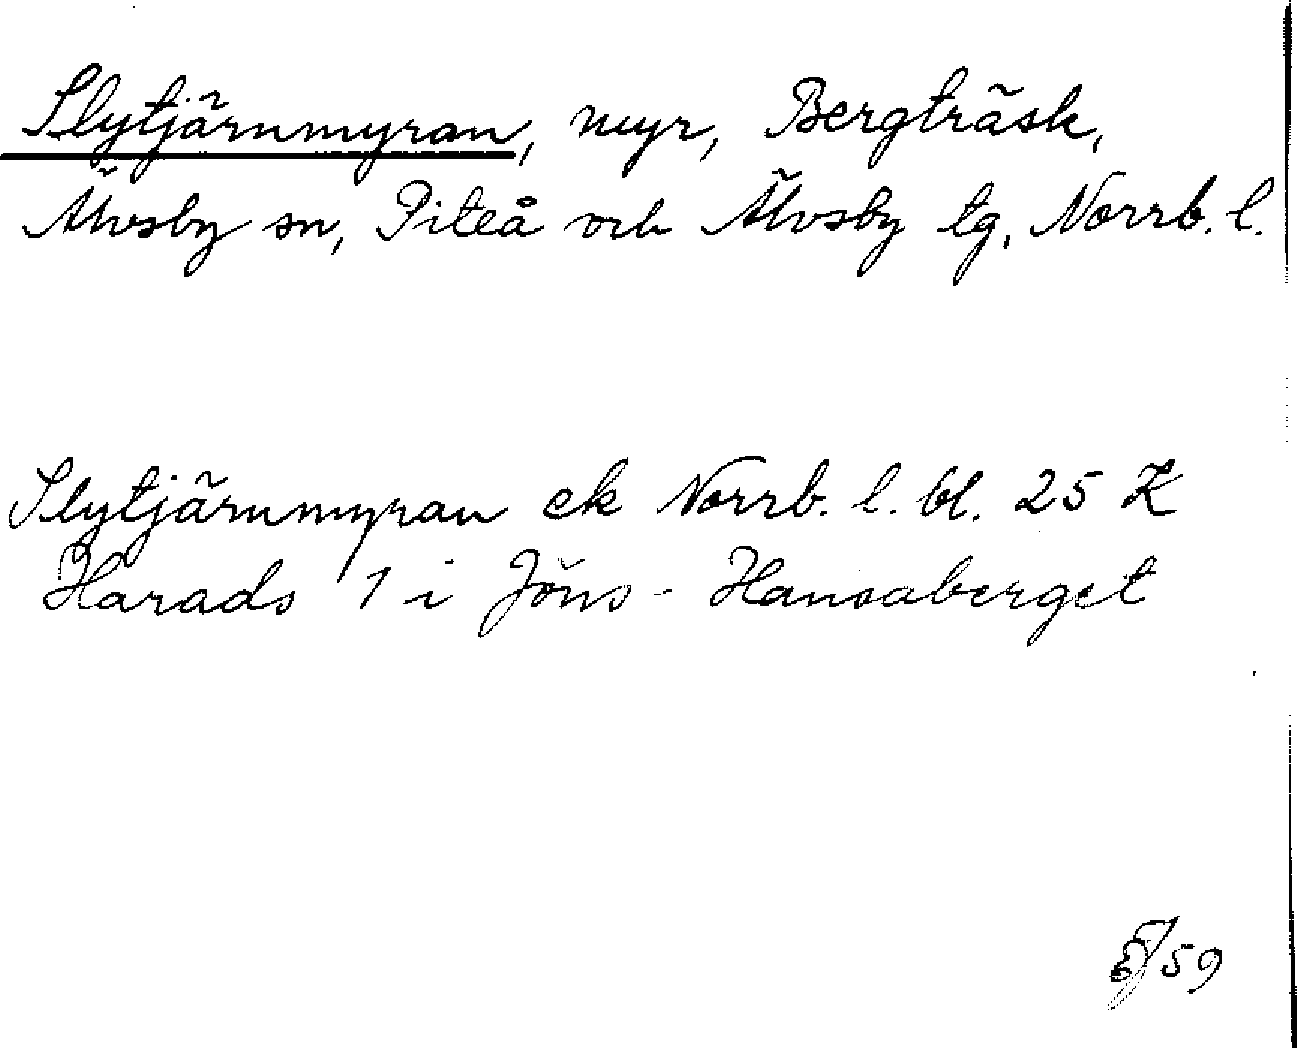 Slytjärnmyran, myr, Bergträsk,
Älvsby sn, Piteå och Älvsby tg, Norrb. l.
Slytjärnmyran ek Norrb. l. bl. 25 K
Harads 1 i Jöns-Hansaberget
59